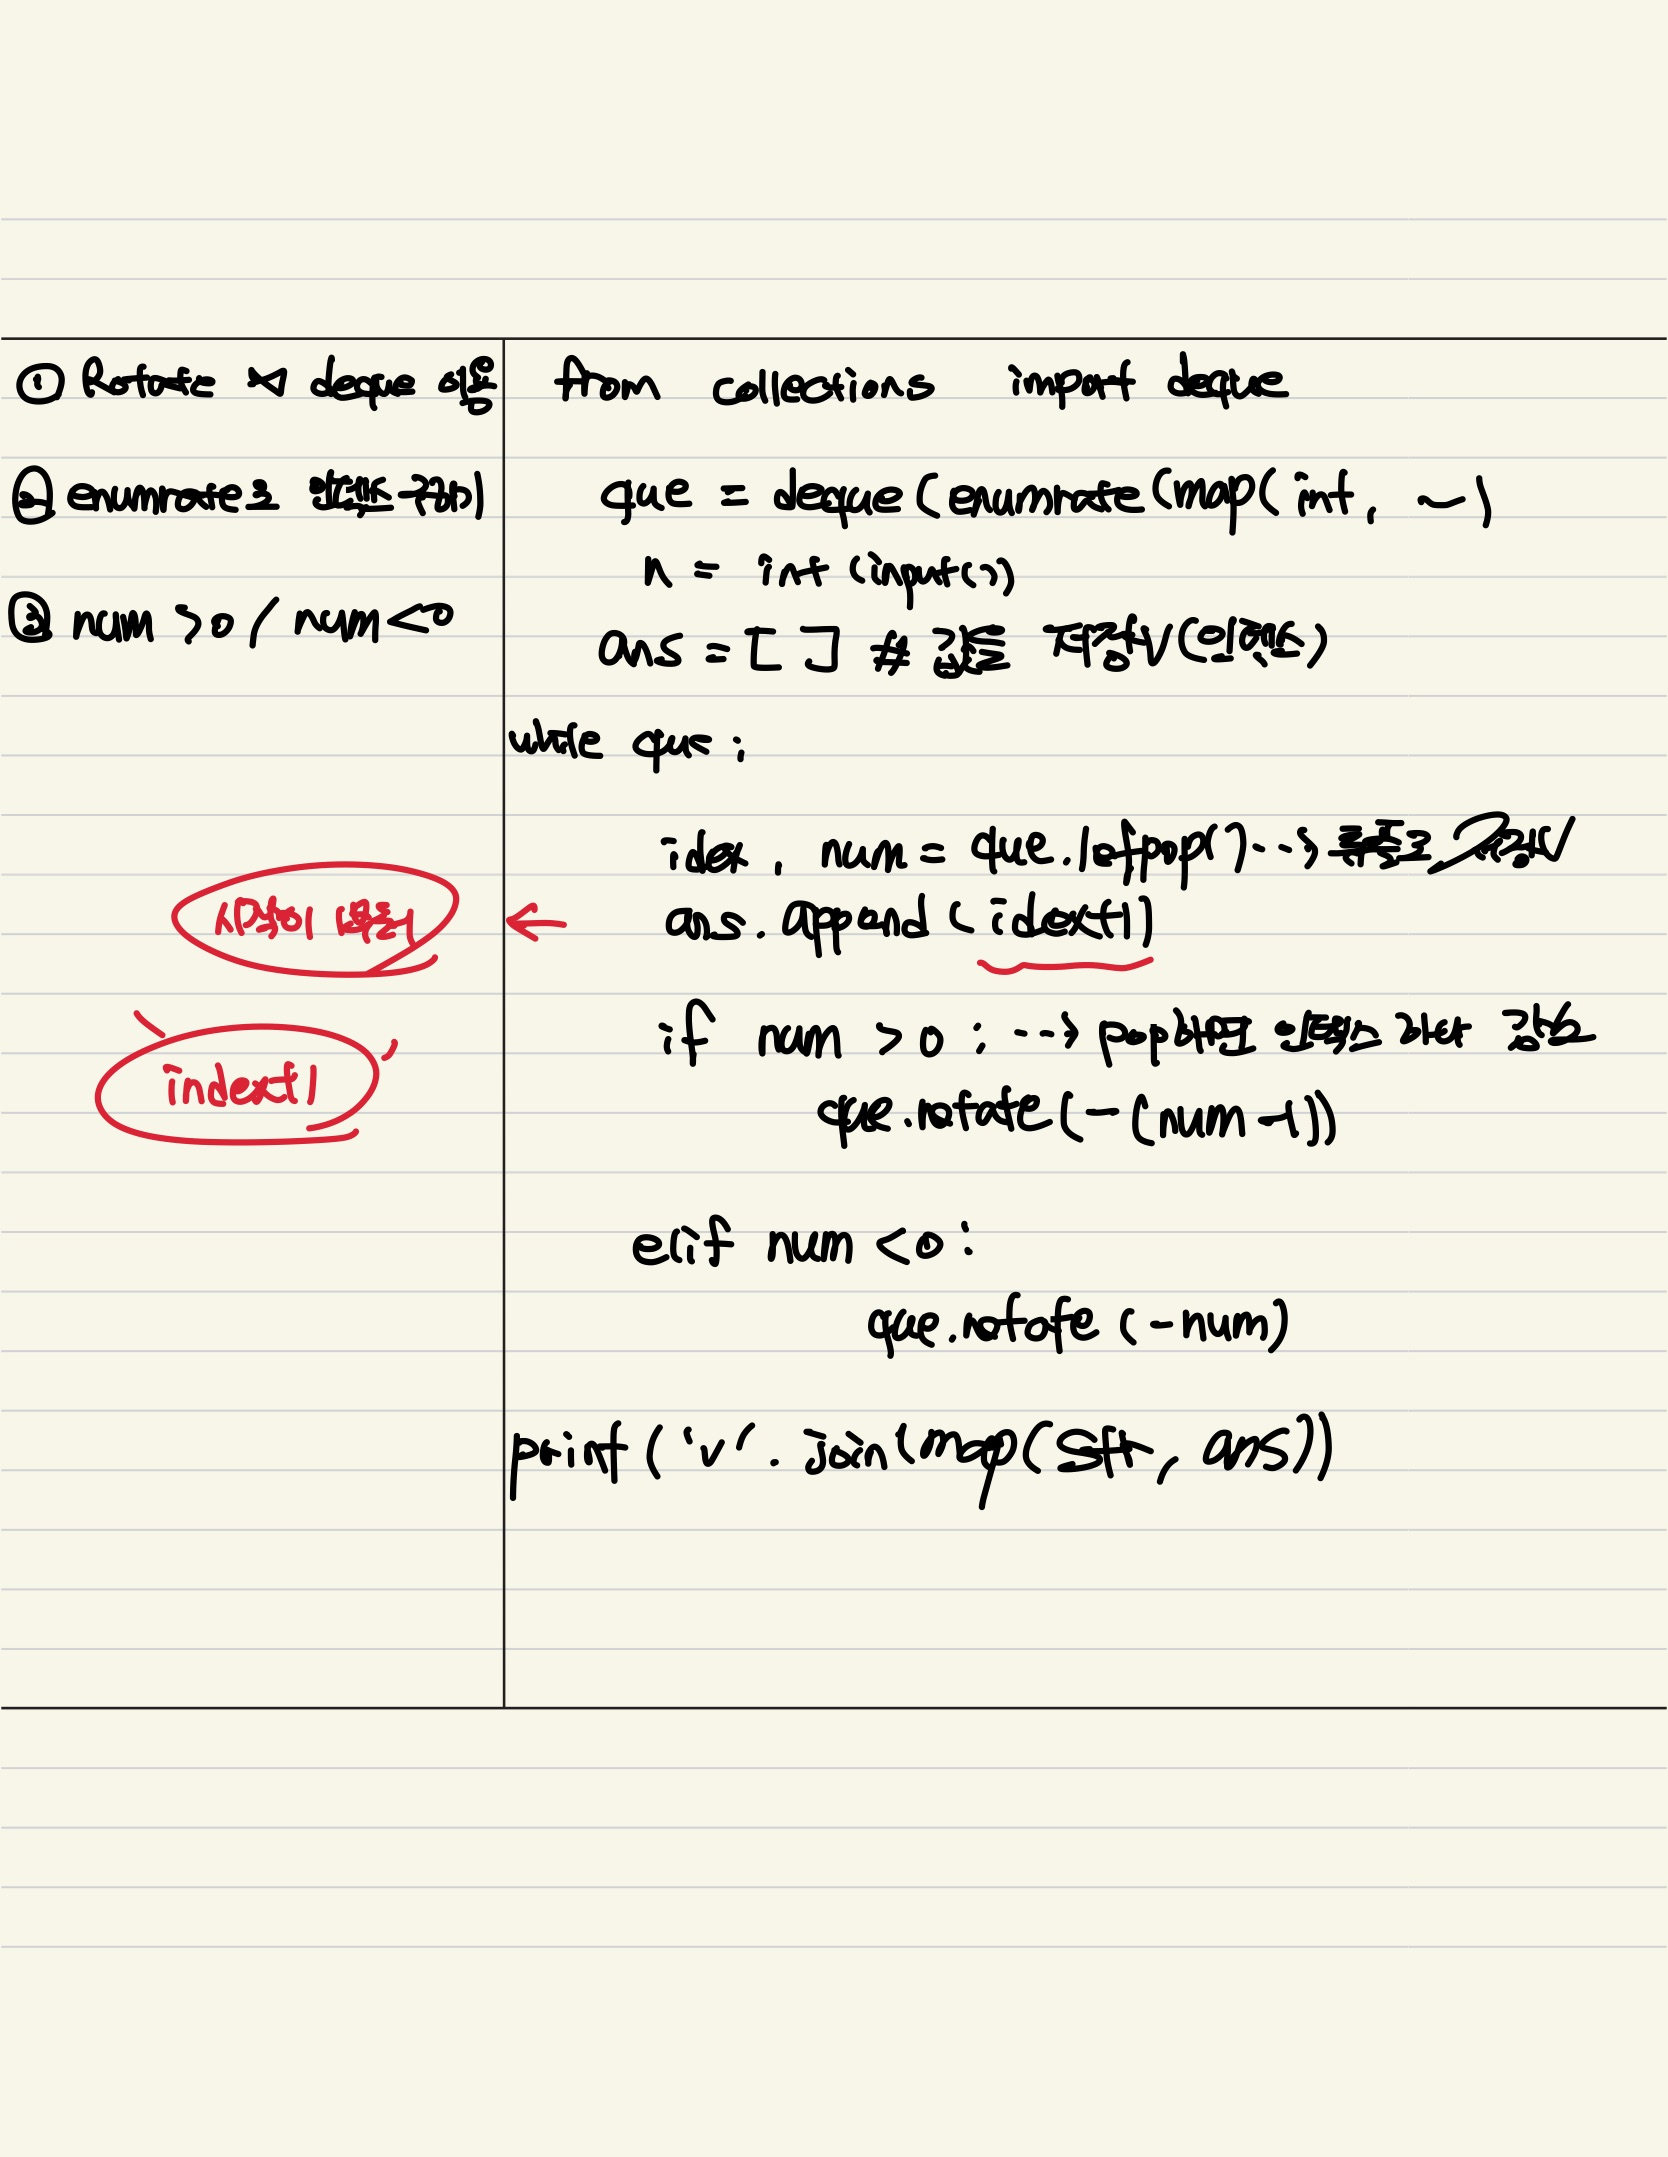 ① Rotate deque 이용
② enumrate로 인덱스 구하기
③ num >0 / num<0
from collections import deque
que = deque(enumrate(map(int, ~)
n = int(input())
ans = [ ] # 값을 저장 (인덱스)
while que :
idex , num = que.lefpop() --> 튜플로 저장
ans.append(idex+1)
if num > 0 : --> pop하면 인덱스 하나 감소
que.rotate(-(num-1))
elif num <0 :
que.rotate(-num)
print(' '.join(map(str, ans))
index+1